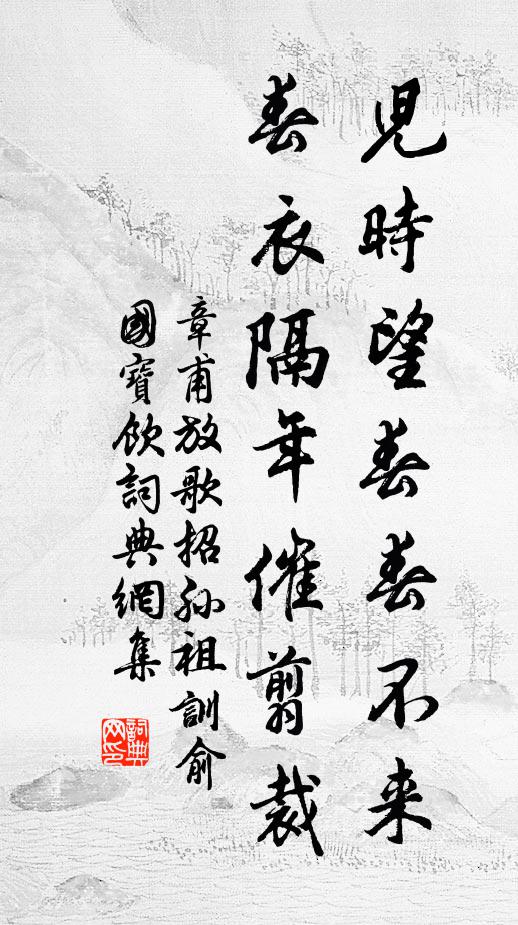 児時望春春不来
春衣隔年催翦裁
章甫放歌招孙祖訓俞
國寶飲詞典網集
詞典
网印